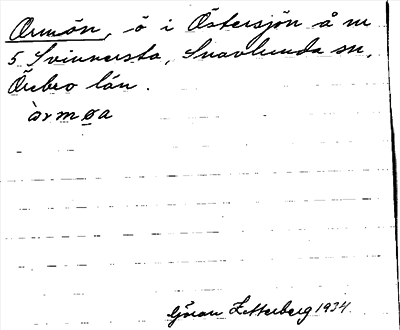 Ormön, -ö i Östersjön å nr
5 Svinnersta, Snavlunda sn,
Örebro län.
òrmøa
Göran Zetterberg 1934